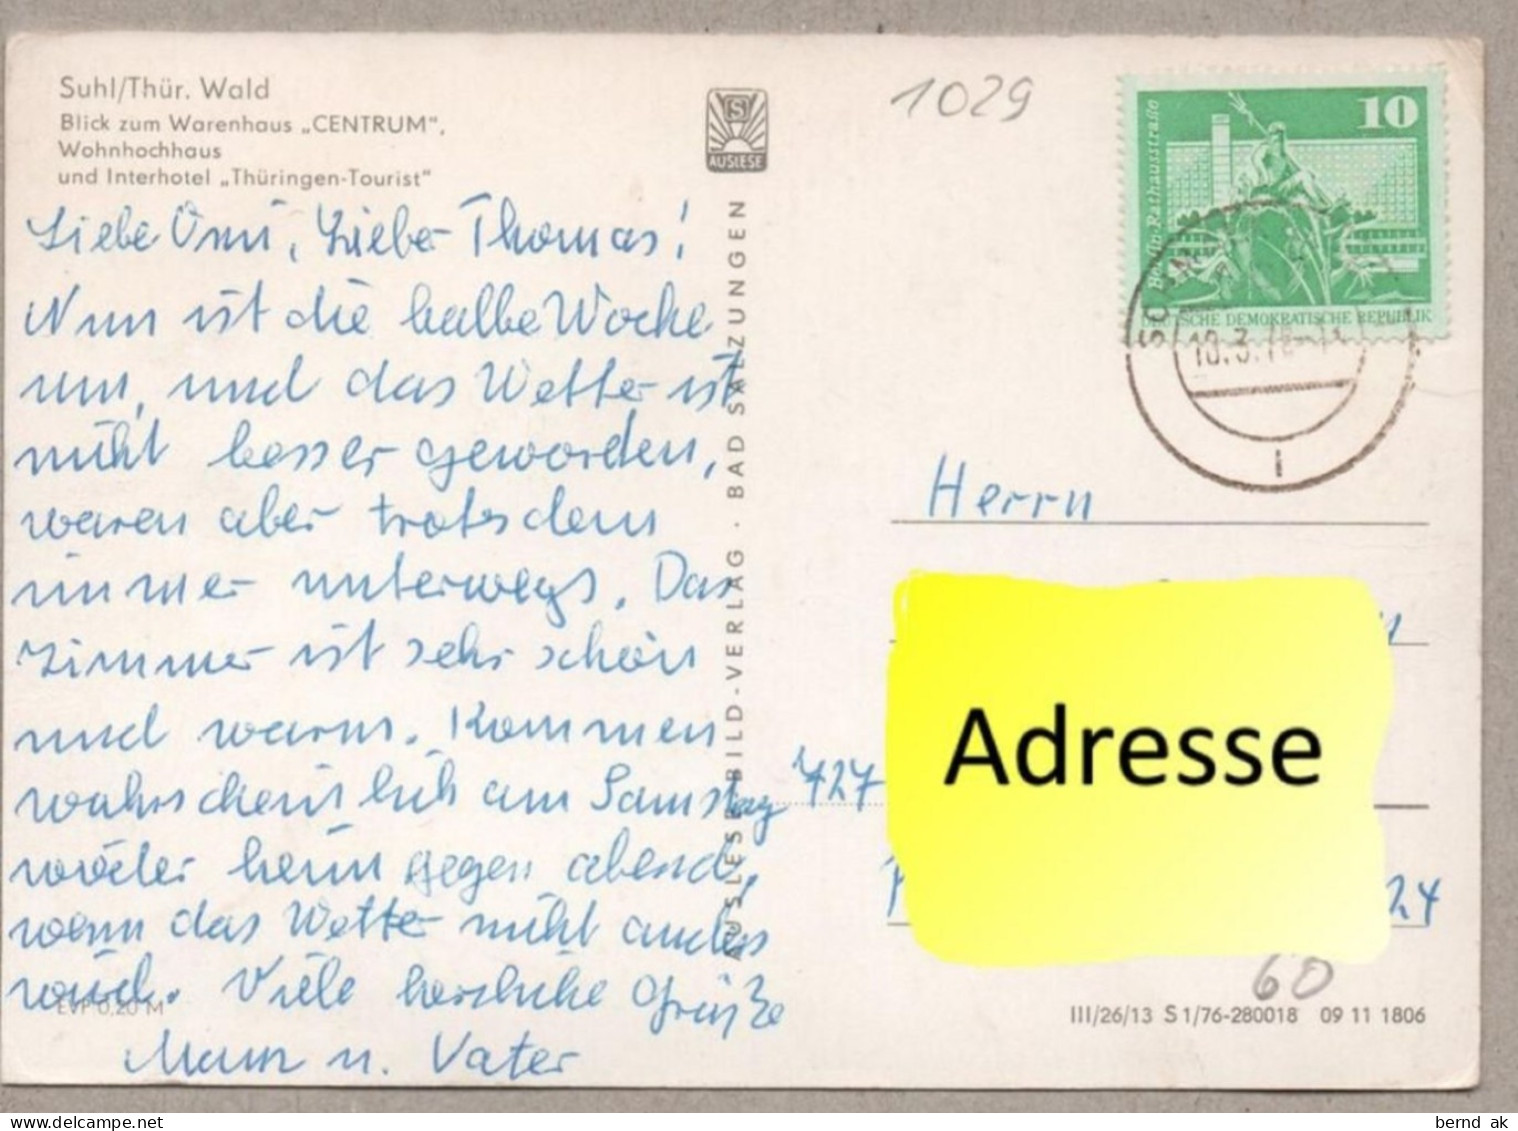 Suhl/Thür. Wald
Blick zum Warenhaus „CENTRUM",
Wohnhochhaus
und Interhotel „Thüringen-Tourist"
Liebe Omi, Lieber Thomas!
Nun ist die halbe Woche
um, und das Wetter ist
nicht besser geworden,
waren aber trotzdem
immer unterwegs. Das
Zimmer ist sehr schön
und warm. Kommen
wahrscheinlich am Samstag
wieder heim gegen abend,
wenn das Wetter nicht anders
wird. Viele herzliche Grüße
Mama u. Vater
EVP 0,20 M
S
AUSLESE
AUSLESE-BILD-VERLAG · BAD SALZUNGEN
1029
10
Berlin-Rathausstraße
DEUTSCHE DEMOKRATISCHE REPUBLIK
Herrn
Adresse
727
24
60
III/26/13 S 1/76-280018 09 11 1806
bernd ak